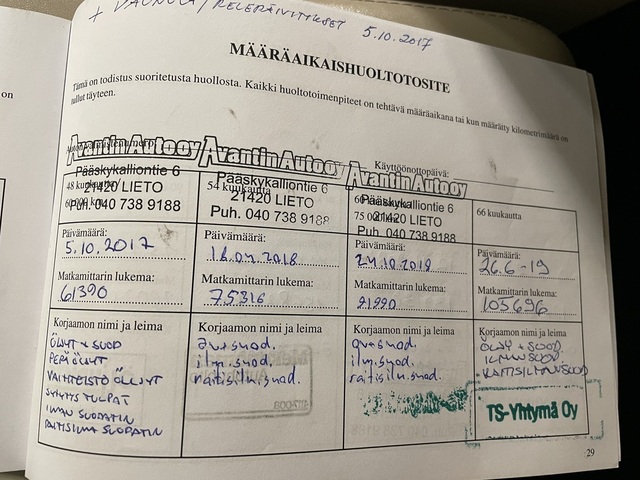 + VAUNU1/RELEPÄIVITYKSET 5.10.2017
MÄÄRÄAIKAISHUOLTOTOSITE
Tämä on todistus suoritetusta huollosta. Kaikki huoltotoimenpiteet on tehtävä määräaikana tai kun määrätty kilometrimäärä on
tullut täyteen.
on
Käyttöönottopäivä:
Avantin Auto oy
Pääskykalliontie 6
21420 LIETO
Puh. 040 738 9188
48 kuukautta
Päivämäärä:
5.10.2017
Matkamittarin lukema:
61390
Korjaamon nimi ja leima
ÖLJYT + SUOD
PERÄ ÖLJYT
VAIHTEISTO ÖLJYT
SYTYTYSTULPAT
ILMAN SUODATIN
RAITISILMA SUODATIN
Avantin Auto oy
Pääskykalliontie 6
21420 LIETO
Puh. 040 738 9188
54 kuukautta
Päivämäärä:
Matkamittarin lukema:
75316
Korjaamon nimi ja leima
ilm.suod.
raitisilm.suod.
Avantin Auto oy
Pääskykalliontie 6
21420 LIETO
Puh. 040 738 9188
60 kuukautta
75 000
Päivämäärä:
24.10.2018
Matkamittarin lukema:
91990
Korjaamon nimi ja leima
ilm.suod.
raitisilm.suod.
66 kuukautta
Päivämäärä:
26.6-19
Matkamittarin lukema:
105696
Korjaamon nimi ja leima
ÖLJY + SUOD.
ILMANSUOD.
RAITISILMANSUOD
TS-Yhtymä Oy
29